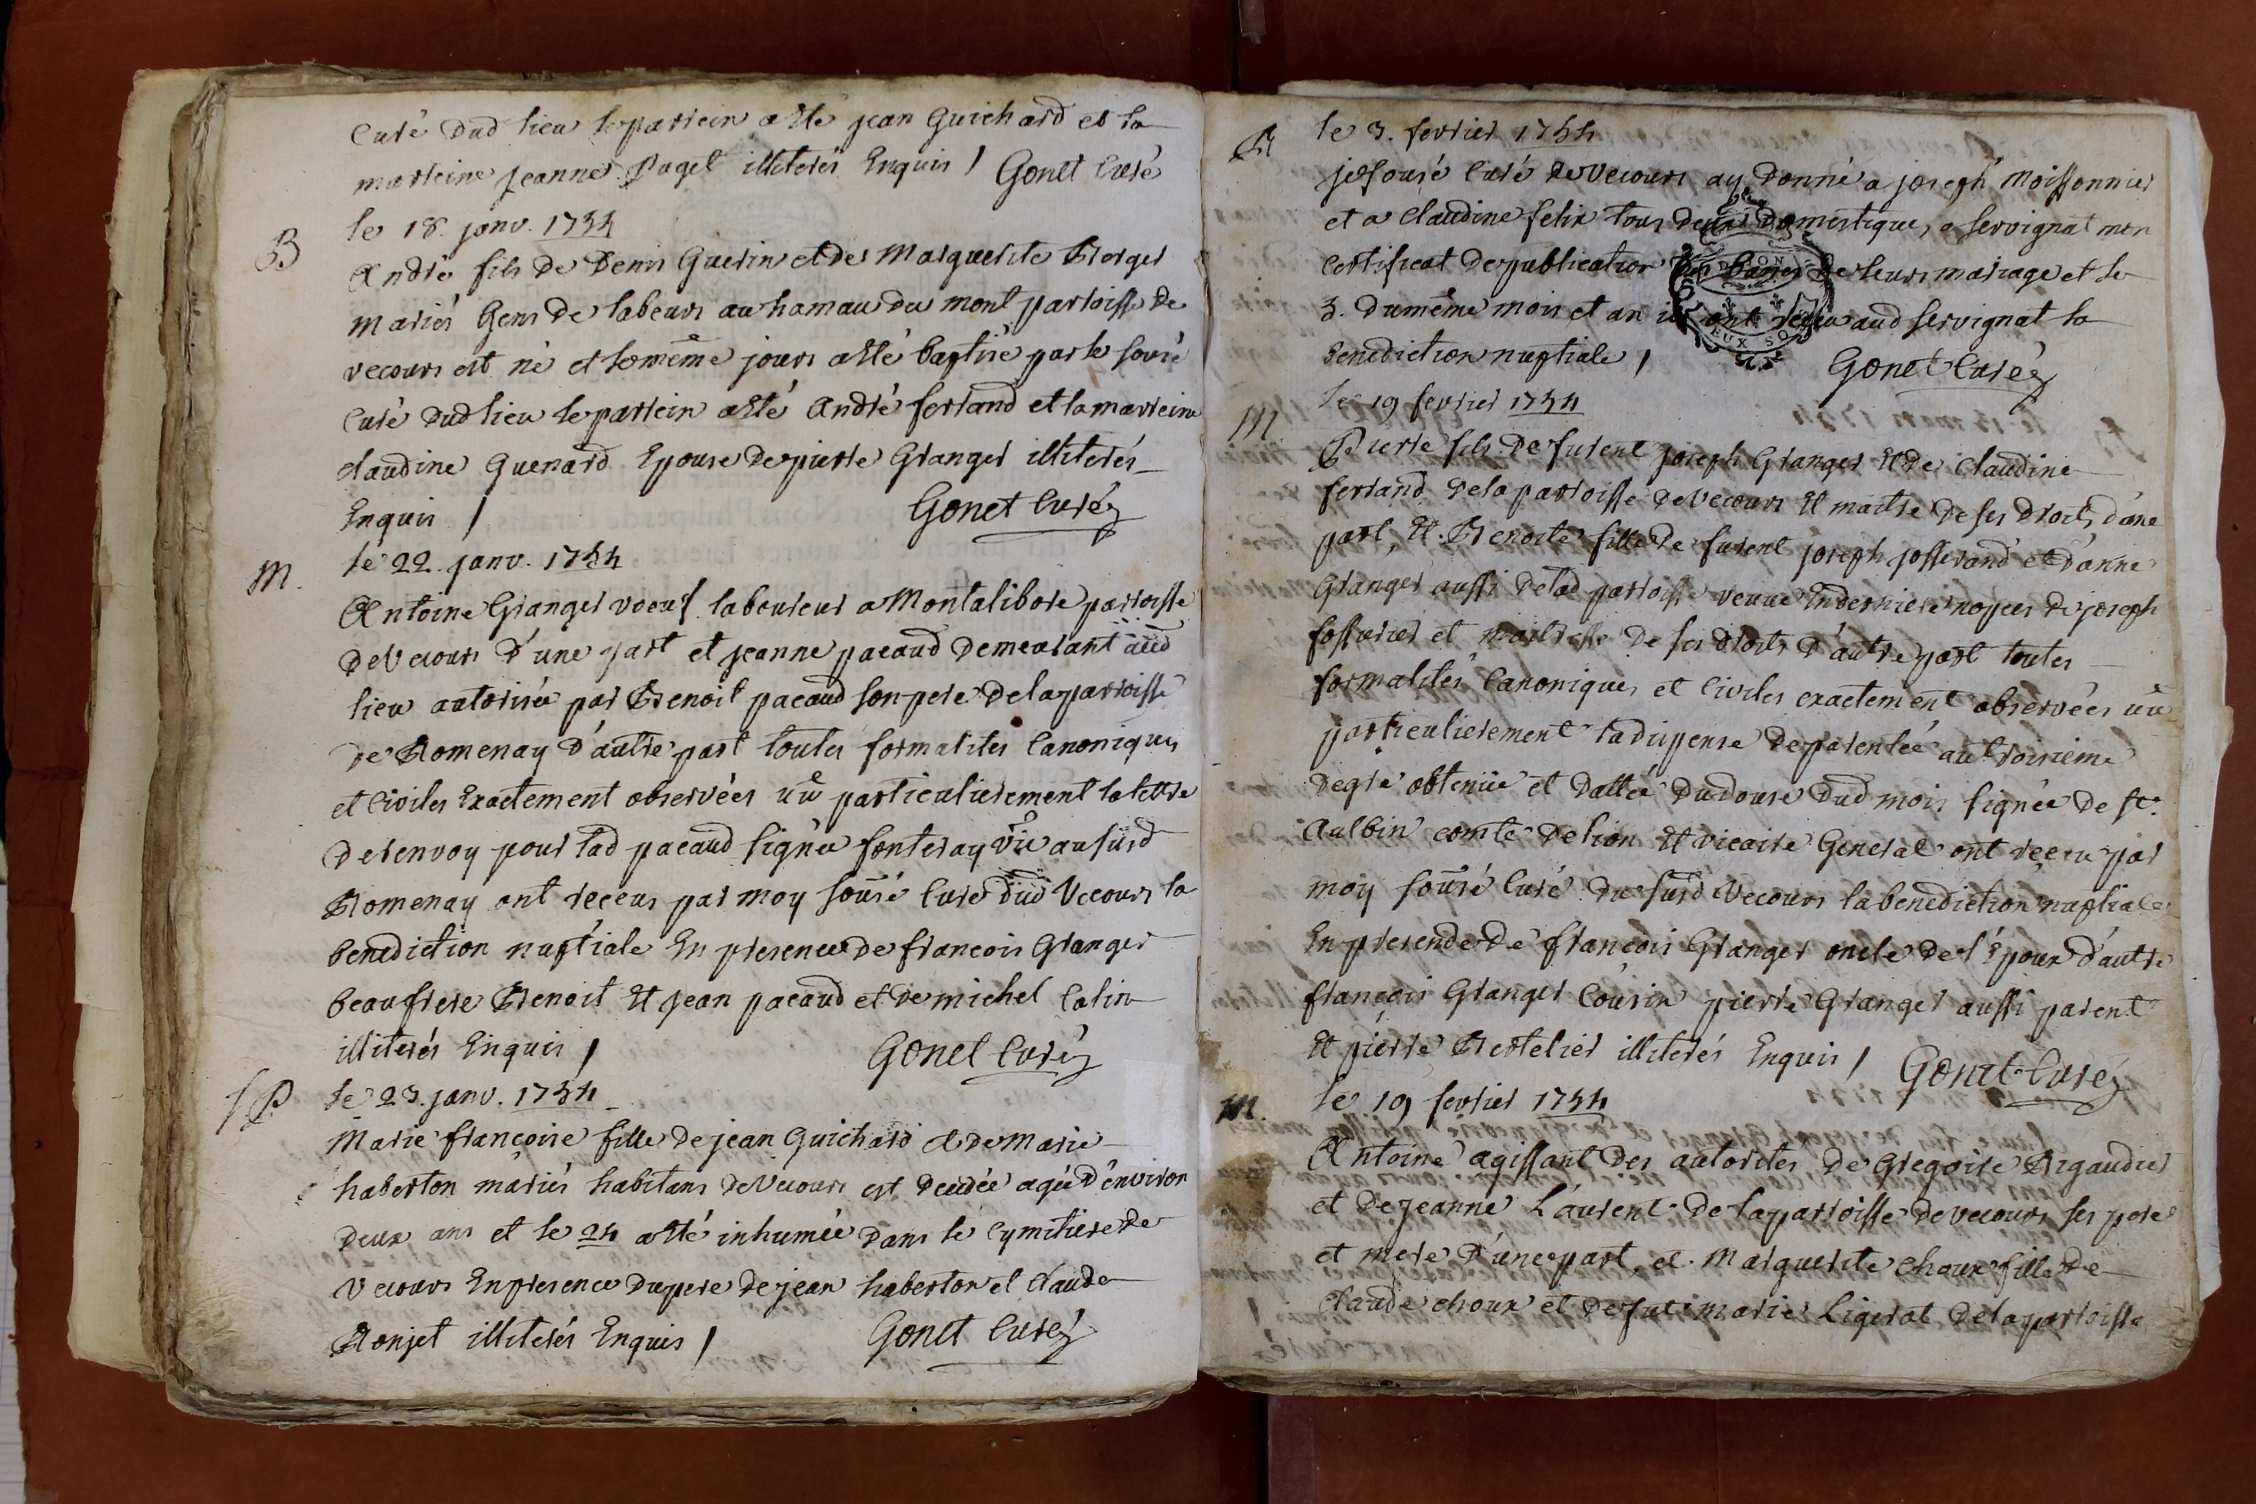 Curé dud lieu le parrein a été jean Guichard et la
marreine jeanne Pagel illiterés Enquis / Gonet Curé
le 18. janv. 1744
B
André fils de Denis Guerin et de Marguerite Berger
mariés Gens de labeurs au hamau du mont parroisse de
vecours est né et le même jours a été baptisé par le sousré
Curé dud lieu le parrein a été André ferrand et la marreine
claudine Guenard Epouse de pierre Granger illiterés
Enquis / Gonet Curé
le 22. janv. 1744
M.
Antoine Granger voeuf laboureur a Montalibore parroisse
de Vecours d'une part et jeanne pacaud demeurant aud
lieu autorisée par Benoit pacaud son pere de la parroisse
de Romenay d'autre part toutes formalités Canoniques
et Civiles Exactement observées vû particulierement la lettre
de renvoy pour lad pacaud signée fonteray vic au susd
Romenay ont receus par moy sousré Curé dud Vecours la
benediction nuptiale En presence de francois Granger
beaufrere Benoit Et jean pacaud et de michel Colin
illiterés Enquis / Gonet Curé
le 23. janv. 1744
S P
Marie françoise fille de jean Guichard et de Marie
haberton mariés habitans de Vecours est decedée agée d'environ
deux ans et le 24 a été inhumée dans le Cymitiere de
Vecours En presence du pere de jean haberton et claude
Ronjet illiterés Enquis / Gonet Curé
le 3. fevrier 1744
R
je sousré Curé de Vecours ay donné a joseph moissonnier
et a claudine felix tous deux domestiques a servignat mon
Certificat de publication des bancs de leurs mariage et le
3. du même mois et an ils ont reçeu aud servignat la
benediction nuptiale / Gonet Curé
le 19 fevrier 1744
M
Pierre fils de furent joseph Granger Et de claudine
ferrand de la parroisse de Vecours Et maitre de ses droits d'une
part, Et Benoite fille de furent joseph josserand et d'anne
Granger aussi de lad parroisse veuve En derniere nopces de joseph
fossurier et maitresse de ses droits d'autre part toutes
formalités Canoniques et Civiles exactement observées vû
particulierement la dispense de parentée au troisieme
degré obtenüe et dattée du douse dud mois signée de St.
Aulbin comte de lion Et vicaire General ont reçeu par
moy sousré Curé du susd Vecours la benediction nuptiale
En presende de françois Granger oncle de l'Epoux d'autre
françois Granger Cousin pierre Granger aussi parent
Et pierre Bertelier illiterés Enquis / Gonet Curé
le 19 fevrier 1744
M.
Antoine agissant des autorités de Gregoire Rigaudier
et de jeanne Laurent de la parroisse de vecours ses pere
et mere d'une part, et Marguerite choux fille de
claude choux et de fut marie Ligerat de la parroisse